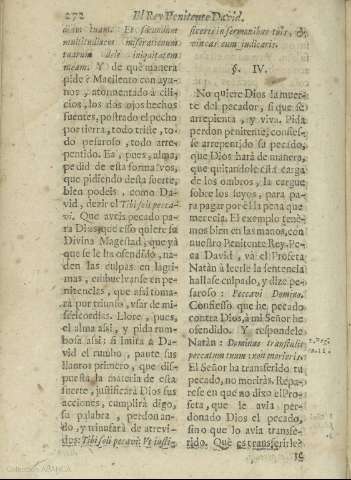 272
El Rey Penitente David.
diam tuam. Et secundum
multitudinem miserationum
tuarum dele iniquitatem
meam. Y de què manera
pide? Macilento con ayu-
nos, atormentado à cili-
cios, los dos ojos hechos
fuentes, postrado el pecho
por tierra, todo triste, to-
do pesaroso, todo arre-
pentido. Ea, pues, alma,
pedid de esta forma: vos,
que pidiendo desta suerte,
bien podeis, como Da-
vid, dezir el Tibi soli pecca-
vi. Que aveis pecado pa-
ra Dios, que esso quiere su
Divina Magestad, que yà
que se le ha ofendido, na-
den las culpas en lagri-
mas, embuelvanse en pe-
nitencias, que assi toma-
rà por triunfo, vsar de mi-
sericordias. Llore, pues,
el alma assi, y pida rum-
bosa assi: si imita à Da-
vid el rumbo, pause sus
llantos primero, que dis-
puesta la materia de esta
suerte, justificarà Dios sus
acciones, cumplirà digo,
su palabra, perdonan-
do, y triunfarà de atrevi-
dos: Tibi soli peccavi: Vt iusti-
ficeris in sermonibus tuis, &
vincas cum iudicaris.
§. IV.
No quiere Dios la muer-
te del pecador, si que se
arrepienta, y viva. Pida
perdon penitente, confies-
se arrepentido su pecado,
que Dios harà de manera,
que quitandole està carga
de los ombros, la cargue
sobre los suyos, para pa-
ra pagar por èl la pena que
merecia. El exemplo tene-
mos bien en las manos, con
nuestro Penitente Rey. Pe-
ca David, và el Profeta
Natàn à leerle la sentencia
hallase culpado, y dize pe-
saroso: Peccavi Domino.
Confiesso que he pecado
contra Dios, à mi Señor he
ofendido. Y respondele
Natàn: Dominus transtulit
peccatum tuum: non morieris.
El Señor ha transferido tu
pecado, no moriràs. Repa-
rese en que no dixo el Pro-
feta, que le avia per-
donado Dios el pecado,
sino que lo avia transfe-
rido. Què es transferirle?
Colección ABANCA